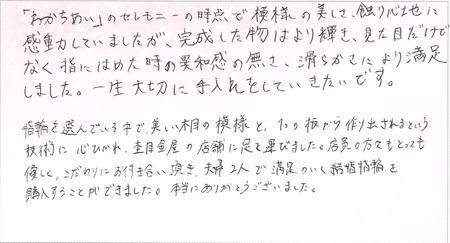 「わかちあい」のセレモニーの時点で模様の美しさ、触り心地に
感動していましたが、完成した物はより輝き、見た目だけで
なく指にはめた時の異和感の無さ、滑らかさにより満足
しました。一生大切に手入れをしていきたいです。
指輪を選んでいる中で美しい木目の模様と、1つの板から作り出されるという
技術に心ひかれ、杢目金屋の店舗に足を運びました。店員の方々もとっても
優しく、こだわりにお付き合い頂き、夫婦2人で満足のいく結婚指輪を
購入することができました。本当にありがとうございました。